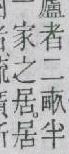 廬者二畝半
一家之居。居